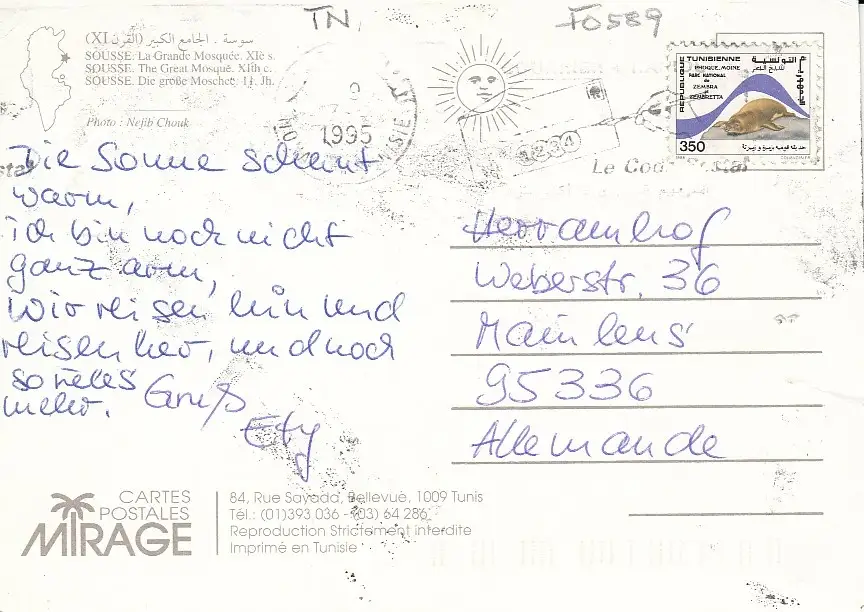 TN
F0589
سوسة . الجامع الكبير (القرن XI)
SOUSSE. La Grande Mosquée. XIè s.
SOUSSE. The Great Mosque. XIth c.
SOUSSE. Die große Moschee. 11. Jh.
Photo : Nejib Chouk
1995
1234
Le Code Postal
REPUBLIQUE TUNISIENNE
PHOQUE MOINE
PARC NATIONAL
de
ZEMBRA
et
ZEMBRETTA
350
Die Sonne scheint
warm,
ich bin noch nicht
ganz arm,
Wir reisen hin und
reisen her, und noch
so vieles
mehr. Gruß
Ety
Herramhof
Weberstr. 36
Mainleus
95336
Allemande
CARTES
POSTALES
MIRAGE
84, Rue Sayada, Bellevue, 1009 Tunis
Tél.: (01)393 036 - (03) 64 286
Reproduction Strictement interdite
Imprimé en Tunisie